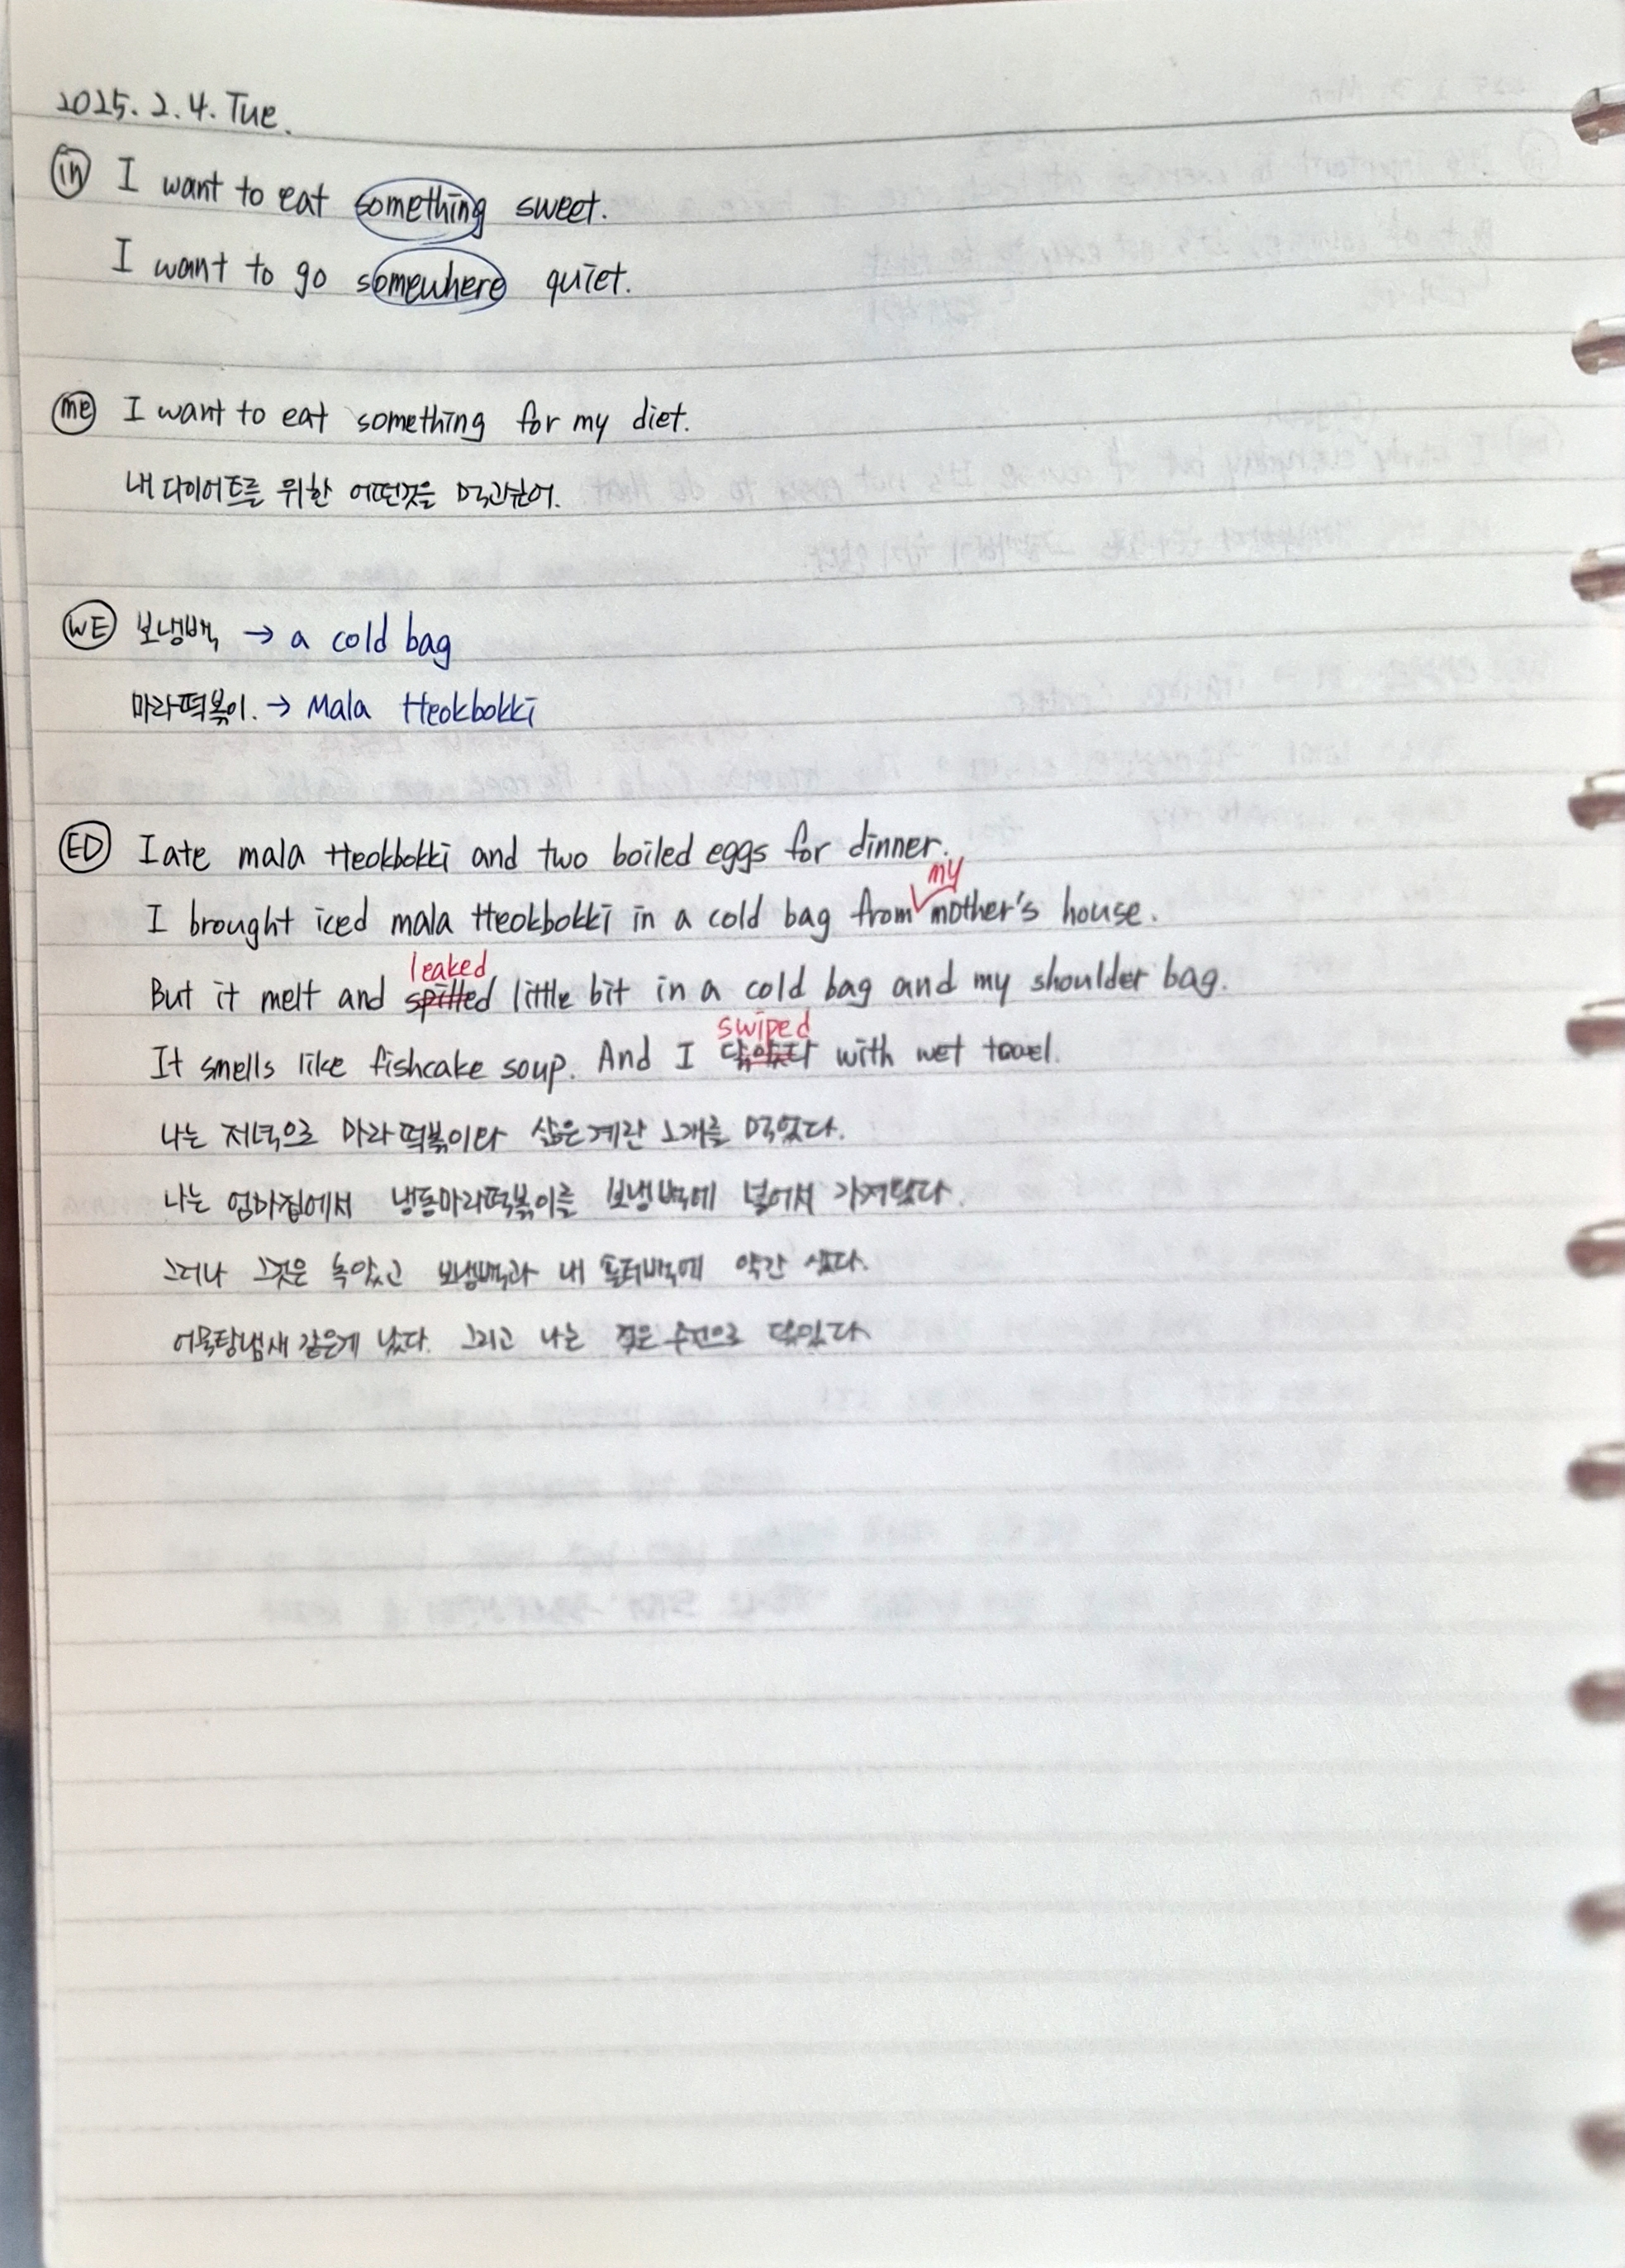 2025. 2. 4. Tue.
in I want to eat something sweet.
I want to go somewhere quiet.
me I want to eat something for my diet.
내 다이어트를 위한 어떤것을 먹고싶어.
WE 보냉백 → a cold bag
마라떡볶이. → Mala tteokbokki
ED I ate mala tteokbokki and two boiled eggs for dinner.
my
I brought iced mala tteokbokki in a cold bag from mother's house.
leaked
But it melt and spilled little bit in a cold bag and my shoulder bag.
swiped
It smells like fishcake soup. And I 닦았다 with wet towel.
나는 저녁으로 마라떡볶이와 삶은계란 2개를 먹었다.
나는 엄마집에서 냉동마라떡볶이를 보냉백에 넣어서 가져왔다.
그러나 그것은 녹았고 보냉백과 내 숄더백에 약간 샜다.
어묵탕냄새 같은게 났다. 그리고 나는 젖은 수건으로 닦았다